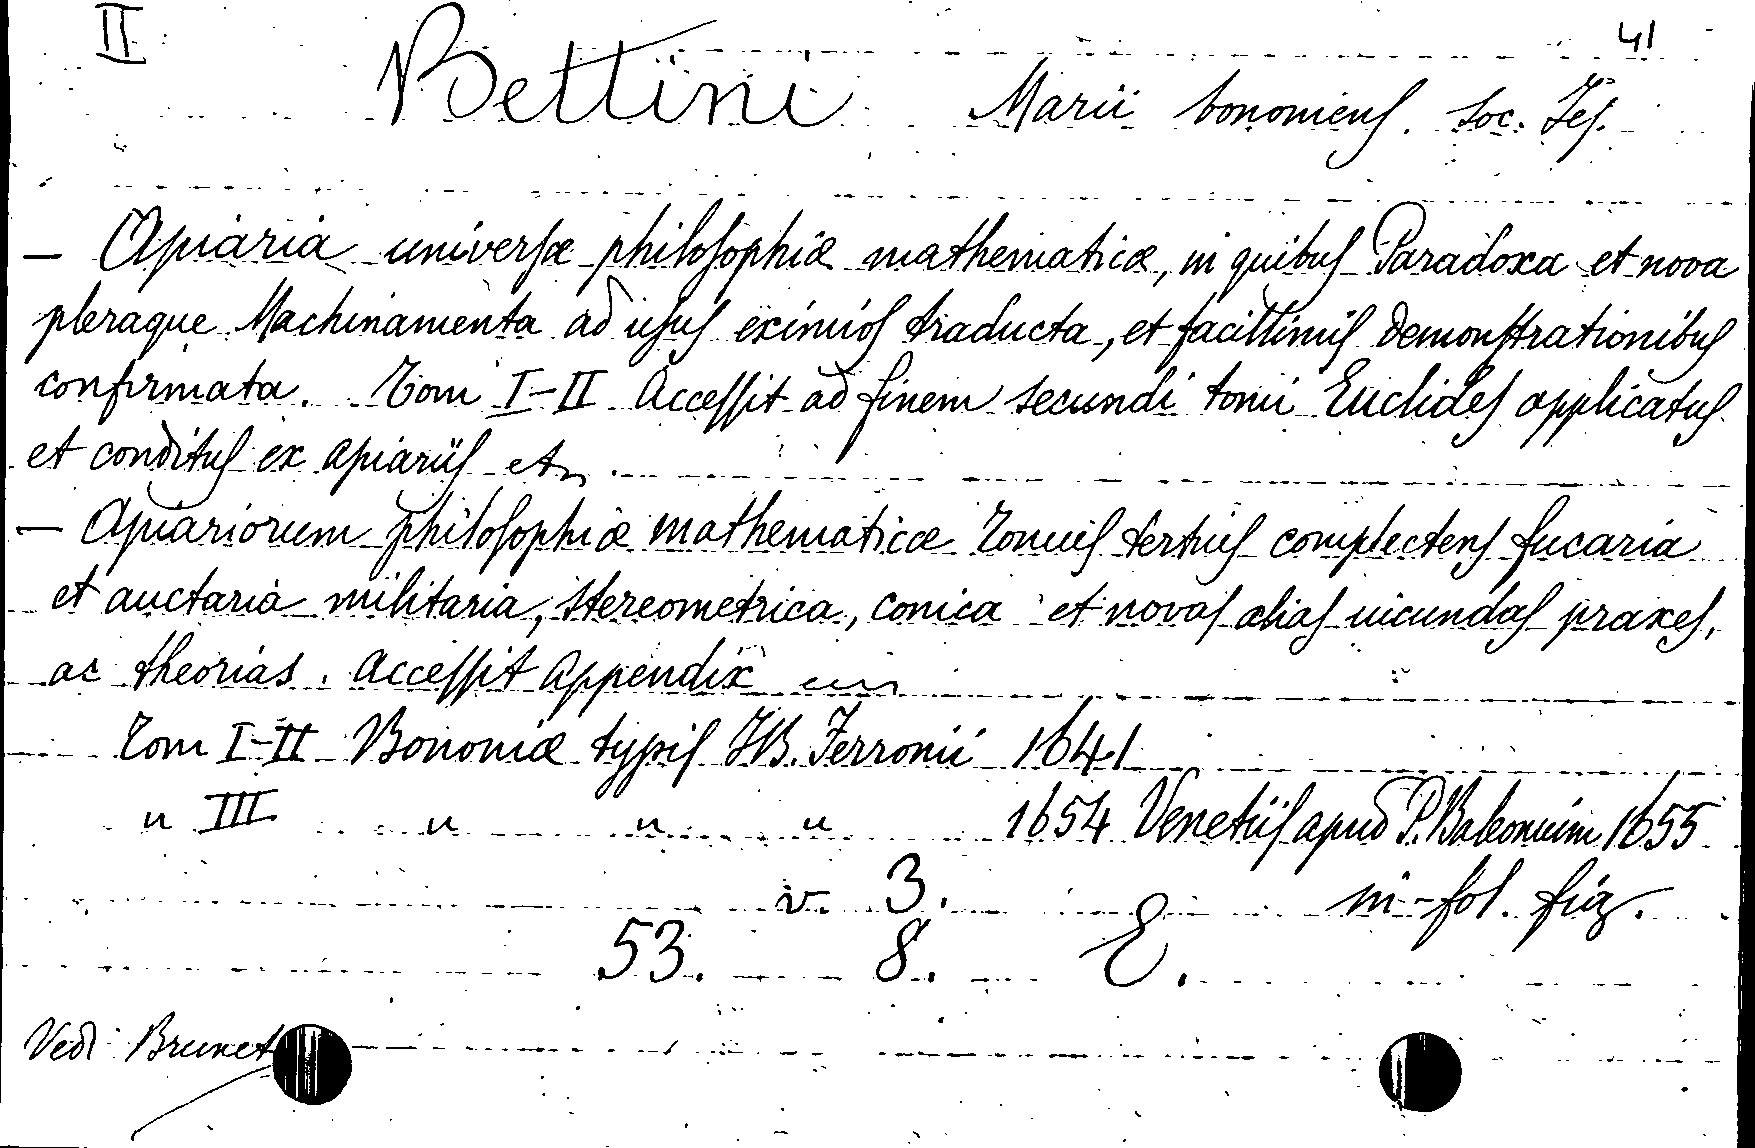 II
41
Bettini Marii bononiens. Soc. Jes.
— Apiaria universæ philosophiæ mathematicæ, in quibus Paradoxa et nova
pleraque Machinamenta ad usus eximios traducta, et facillimis demonstrationibus
confirmata. Tom I-II Accessit ad finem secundi tomi Euclides applicatus
et conditus ex apiariis etc.
— Apiariorum philosophiæ mathematicæ Tomus tertius complectens fucaria
et auctaria militaria, stereometrica, conica et novas alias iucundas praxes,
ac theorias. Accessit appendix
Tom I-II Bononiæ typis JB. Ferronii 1641
" III " " " 1654 Venetiis apud P. Baleonium 1655
v. 3. in-fol. fig.
53. 8. E.
Vedi Brunet